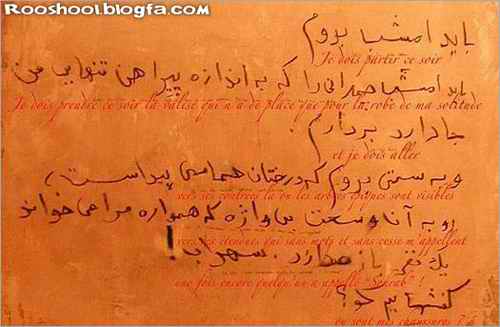 Rooshool.blogfa.com
باید امشب بروم
Je dois partir ce soir
باید امشب چمدانی را که به اندازه پیراهن تنهایی من
Je dois prendre ce soir la valise qui n'a de place que pour la robe de ma solitude
جا دارد بردارم.
et je dois aller
و به سمتی بروم که درختان حماسی پیداست،
vers ses contrées là où les arbres épiques sont visibles
رو به آن وسعت بی واژه که همواره مرا می خواند
vers ses étendues qui sans mots et sans cesse m'appellent
یک نفر باز صدا زد: سهراب!
une fois encore quelqu'un a appelé "Sohrab" !
کفشهایم کو؟
où sont mes chaussures ?